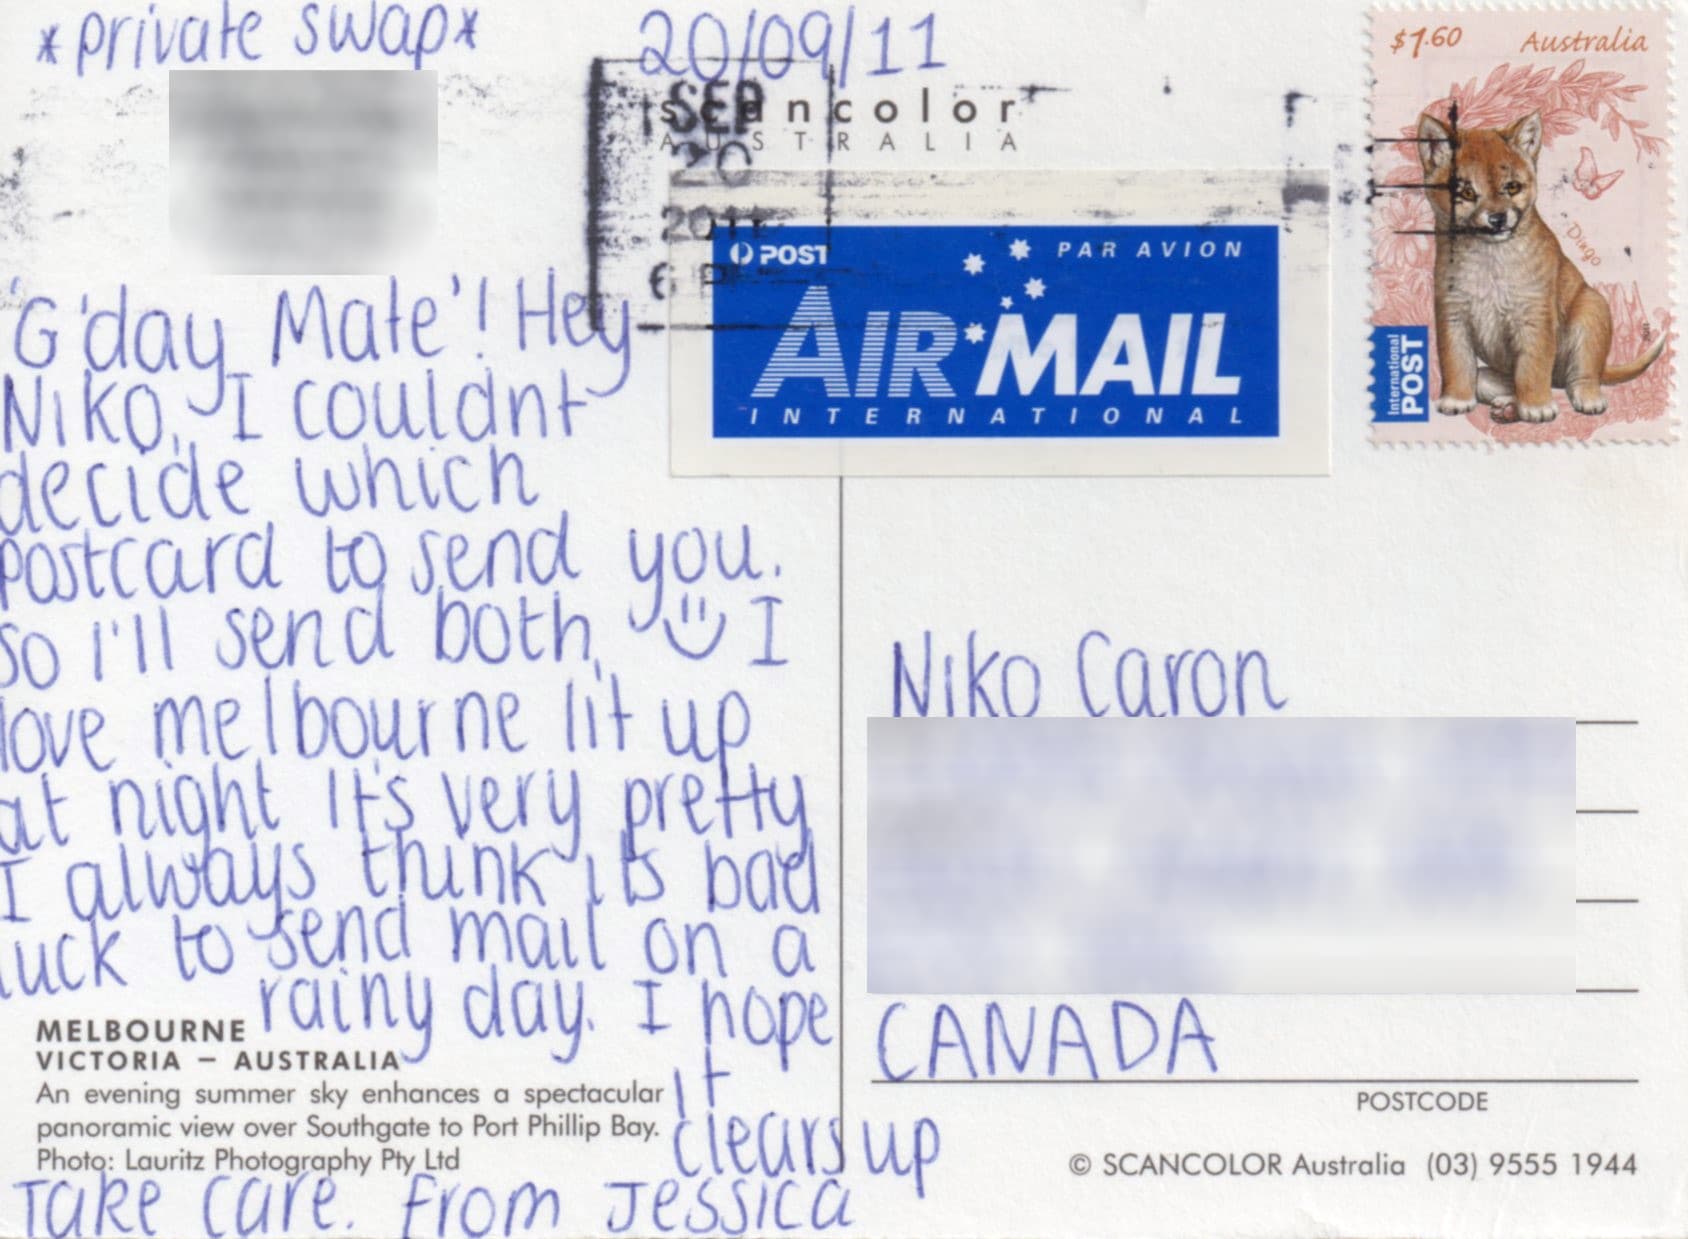 *private swap*
20/09/11
scancolor
AUSTRALIA
SEP
20
2011
6 P
$1.60 Australia
Dingo
International
POST
POST PAR AVION
AIR MAIL
INTERNATIONAL
'G'day Mate'! Hey
Niko, I couldnt
decide which
postcard to send you.
so I'll send both, I
love melbourne lit up
at night It's very pretty
I always think its bad
luck to send mail on a
rainy day. I hope
it
clears up
Take care. From Jessica
MELBOURNE
VICTORIA – AUSTRALIA
An evening summer sky enhances a spectacular
panoramic view over Southgate to Port Phillip Bay.
Photo: Lauritz Photography Pty Ltd
Niko Caron
CANADA
POSTCODE
© SCANCOLOR Australia (03) 9555 1944